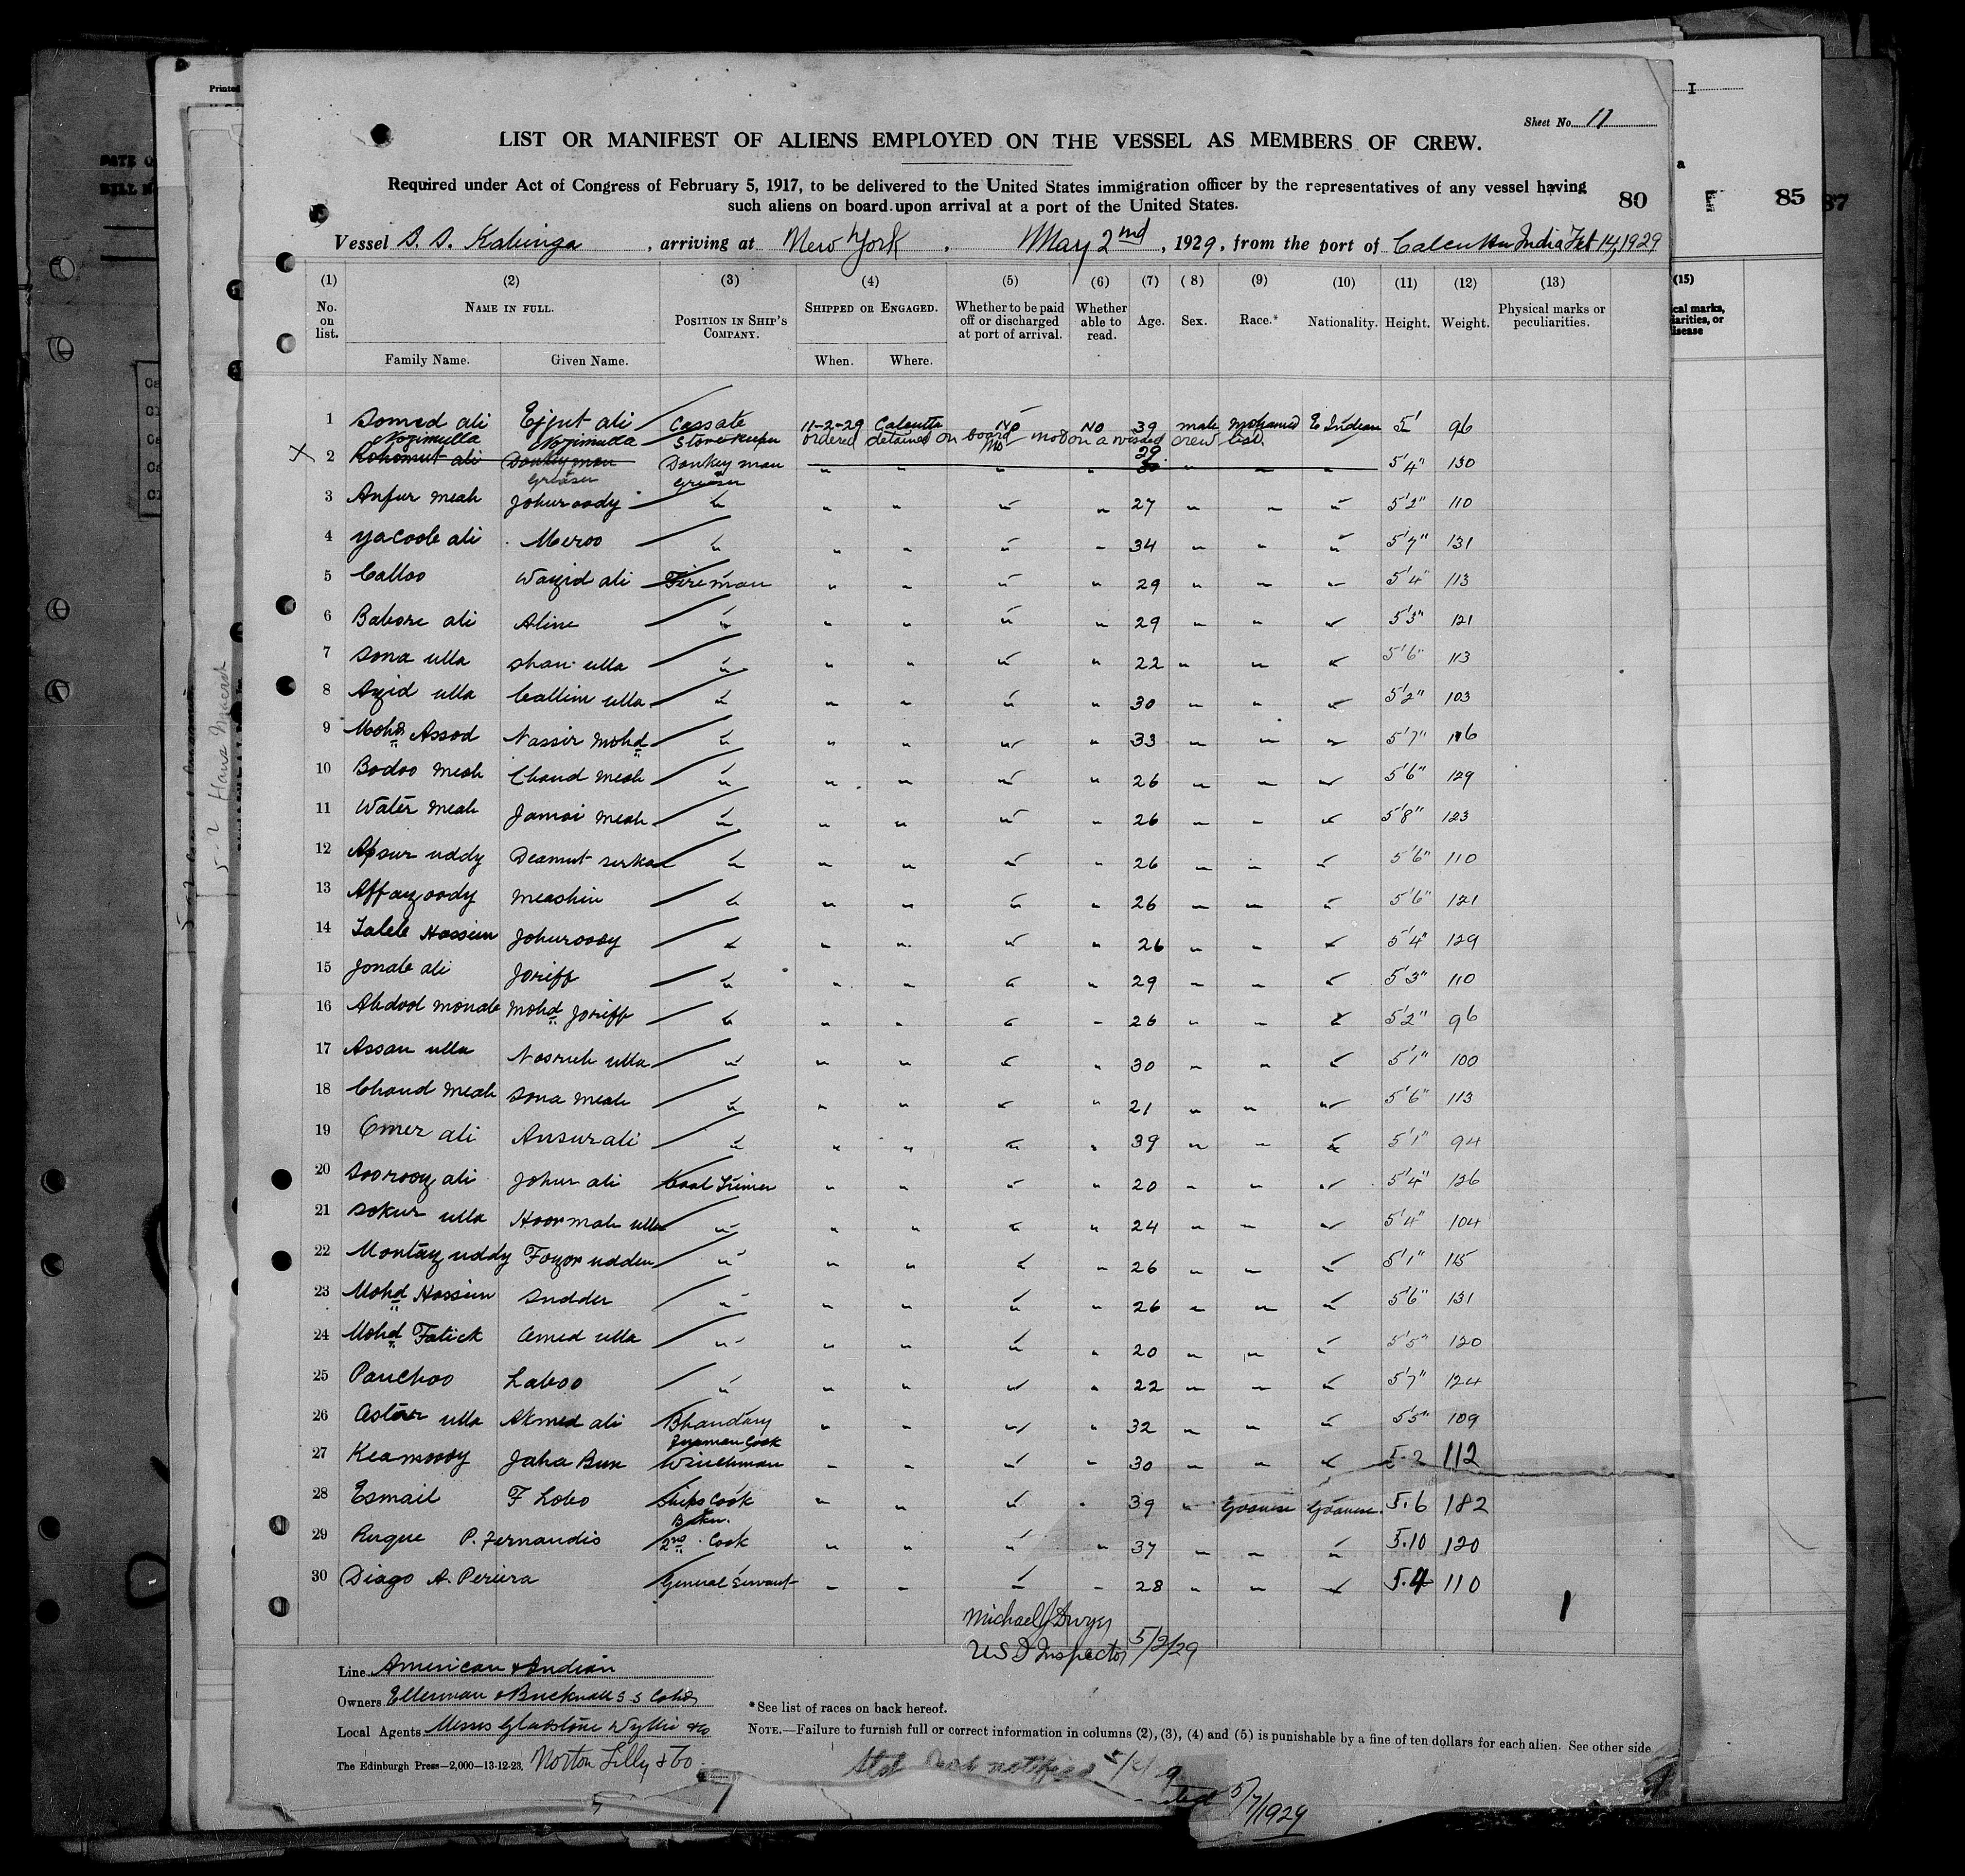 Sheet No. 11
LIST OR MANIFEST OF ALIENS EMPLOYED ON THE VESSEL AS MEMBERS OF CREW.
Required under Act of Congress of February 5, 1917, to be delivered to the United States immigration officer by the representatives of any vessel having
such aliens on board upon arrival at a port of the United States.
80
85
87
Vessel S. S. Kabinga, arriving at New York, May 2nd, 1929, from the port of Calcutta India Feb 14, 1929
(1) (2) (3) (4) (5) (6) (7) (8) (9) (10) (11) (12) (13)
No. on list. NAME IN FULL. Family Name. Given Name. POSITION IN SHIP'S COMPANY. SHIPPED OR ENGAGED. When. Where. Whether to be paid off or discharged at port of arrival. Whether able to read. Age. Sex. Race.* Nationality. Height. Weight. Physical marks or peculiarities.
1 Somed ali Ejjut ali Cassate 11-2-29 Calcutta No No 39 male Mohamed E Indian 5' 96
Nozimulla Nozimulla Storekeeper ordered detained on board not on a visaed crew list.
X 2 Rohomut ali Donkeyman Donkey man " " No " 29 " " " 5'4" 130
Greaser Greaser
3 Anfur Meah Johuroody " " " " " 27 " " " 5'2" 110
4 Yacoob ali Meroo " " " " " 34 " " " 5'7" 131
5 Calloo Wazid ali Fireman " " " " 29 " " " 5'4" 113
6 Babore ali Aline " " " " " 29 " " " 5'3" 121
7 Sona ulla Shan ulla " " " " " 22 " " " 5'6" 113
8 Azid ulla Callim ulla " " " " " 30 " " " 5'2" 103
9 Mohd Assod Nassir Mohd " " " " " 33 " " " 5'7" 116
10 Bodoo Meah Chand Meah " " " " " 26 " " " 5'6" 129
11 Water Meah Jamai Meah " " " " " 26 " " " 5'8" 123
12 Afsur uddy Deamut Serkar " " " " " 26 " " " 5'6" 110
13 Affazoody Meashin " " " " " 26 " " " 5'6" 121
14 Taleb Hossein Johuroody " " " " " 26 " " " 5'4" 129
15 Jonab ali Joriff " " " " " 29 " " " 5'3" 110
16 Abdool Monab Mohd Joriff " " " " " 26 " " " 5'2" 96
17 Assan ulla Nosrub ulla " " " " " 30 " " " 5'1" 100
18 Chand Meah Sona Meah " " " " " 21 " " " 5'6" 113
19 Omer ali Ansur ali " " " " " 39 " " " 5'1" 94
20 Soorooz ali Johur ali Coal Trimer " " " " 20 " " " 5'4" 126
21 Sokur ulla Noormah ulla " " " " " 24 " " " 5'4" 104
22 Montaz uddy Fozor udden " " " " " 26 " " " 5'1" 115
23 Mohd Hossein Sudder " " " " " 26 " " " 5'6" 131
24 Mohd Fatick Amed ulla " " " " " 20 " " " 5'5" 120
25 Panchoo Laboo " " " " " 22 " " " 5'7" 124
26 Astor ulla Akmed ali Bhandary " " " " 32 " " " 5'5" 109
Fireman Cook
27 Keamoody Jaha Bux Winchman " " " " 30 " " " 5-2 112
28 Esmail F Lobo Ships Cook " " " " 39 " Goanese Goanese. 5.6 182
Baker.
29 Ruque P. Fernandis 2nd Cook " " " " 37 " " " 5.10 120
30 Diago A. Periera General Servant " " " " 28 " " " 5.4 110
1
Michael J Dwyer
U S I Inspector 5/2/29
Line American & Indian
Owners Ellerman & Bucknall S S Co Ltd
Local Agents Messrs Gladstone Wyllie & Co
The Edinburgh Press—2,000—13-12-23. Norton Lilly & Co.
*See list of races on back hereof.
NOTE.—Failure to furnish full or correct information in columns (2), (3), (4) and (5) is punishable by a fine of ten dollars for each alien. See other side
notified
5/7/1929
Printed
5-2 Hans
(15)